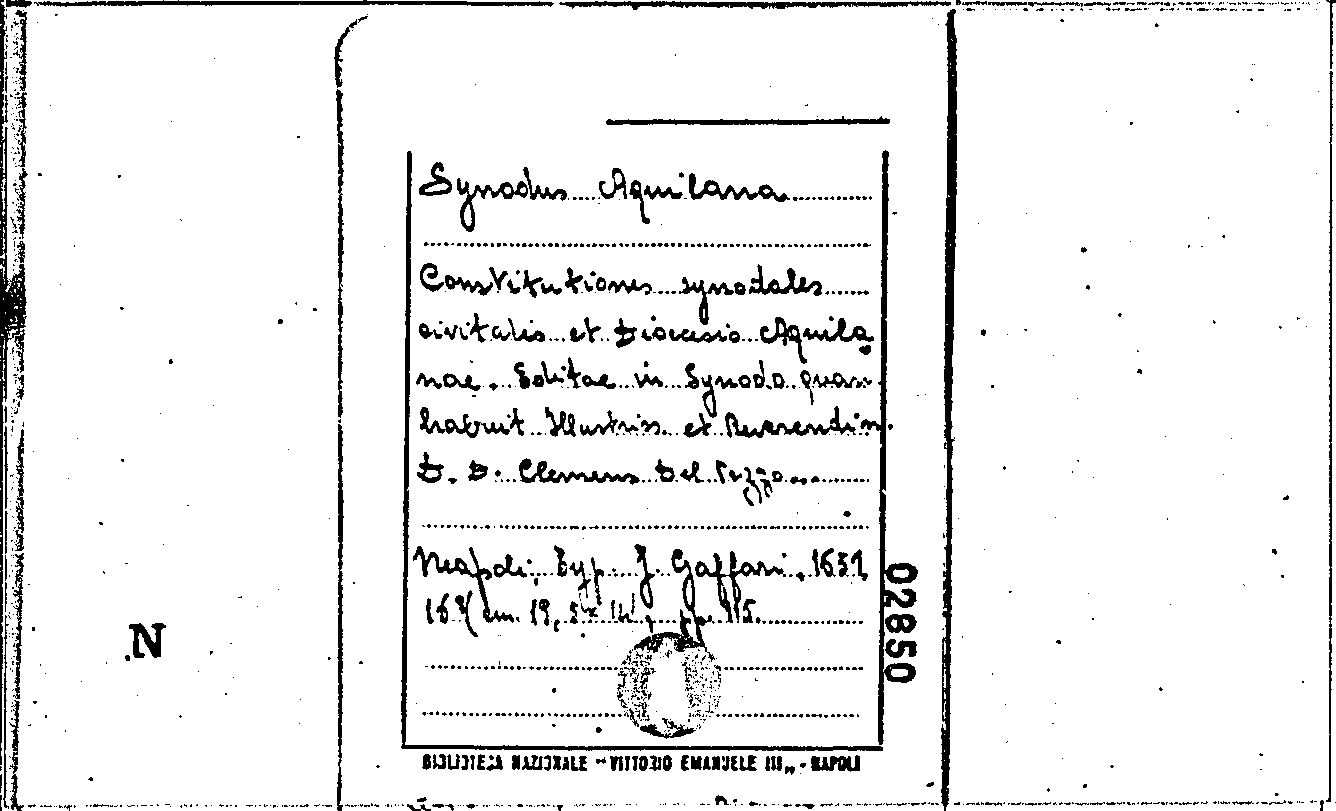 Synodus Aquilana
Constitutiones synodales
civitatis et Diocesis Aquila
nae. Editae in Synodo quam
habuit Illustriss. et Reverendiss.
D. D. Clemens Del Pezzo
Neapoli, Typ. J. Gaffari, 1651
16º/ cm. 19,5 x 14, pp. 115.
02850
N
BIBLIOTECA NAZIONALE "VITTORIO EMANUELE III" - NAPOLI